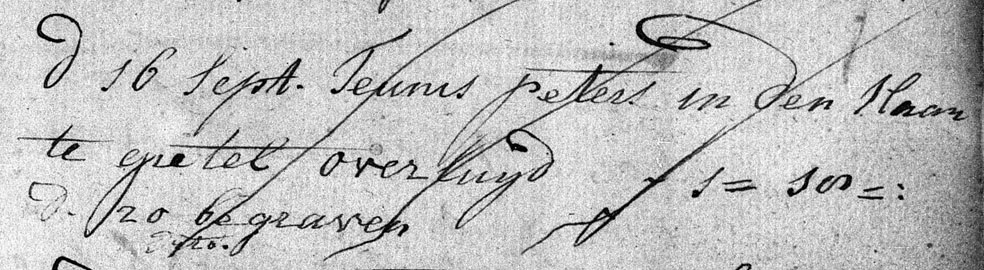 d 16 Sept. Teunis peters in den Haan
te grietel overluyd 1 = 10 = :
d. 20 begraven
dito.